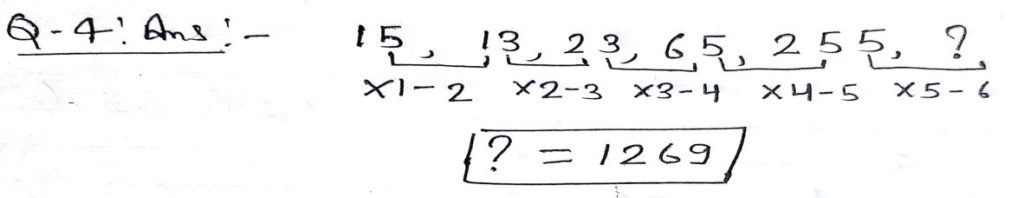 Q-4: Ans:- 15, 13, 23, 65, 255, ?
×1-2 ×2-3 ×3-4 ×4-5 ×5-6
? = 1269